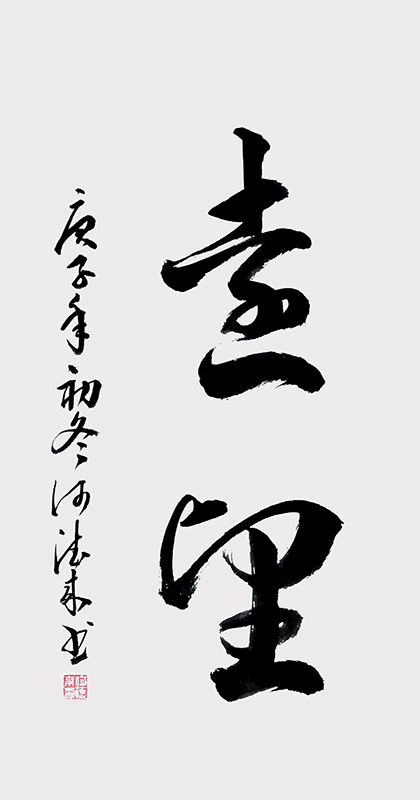 遠望
庚子年初冬何德来书